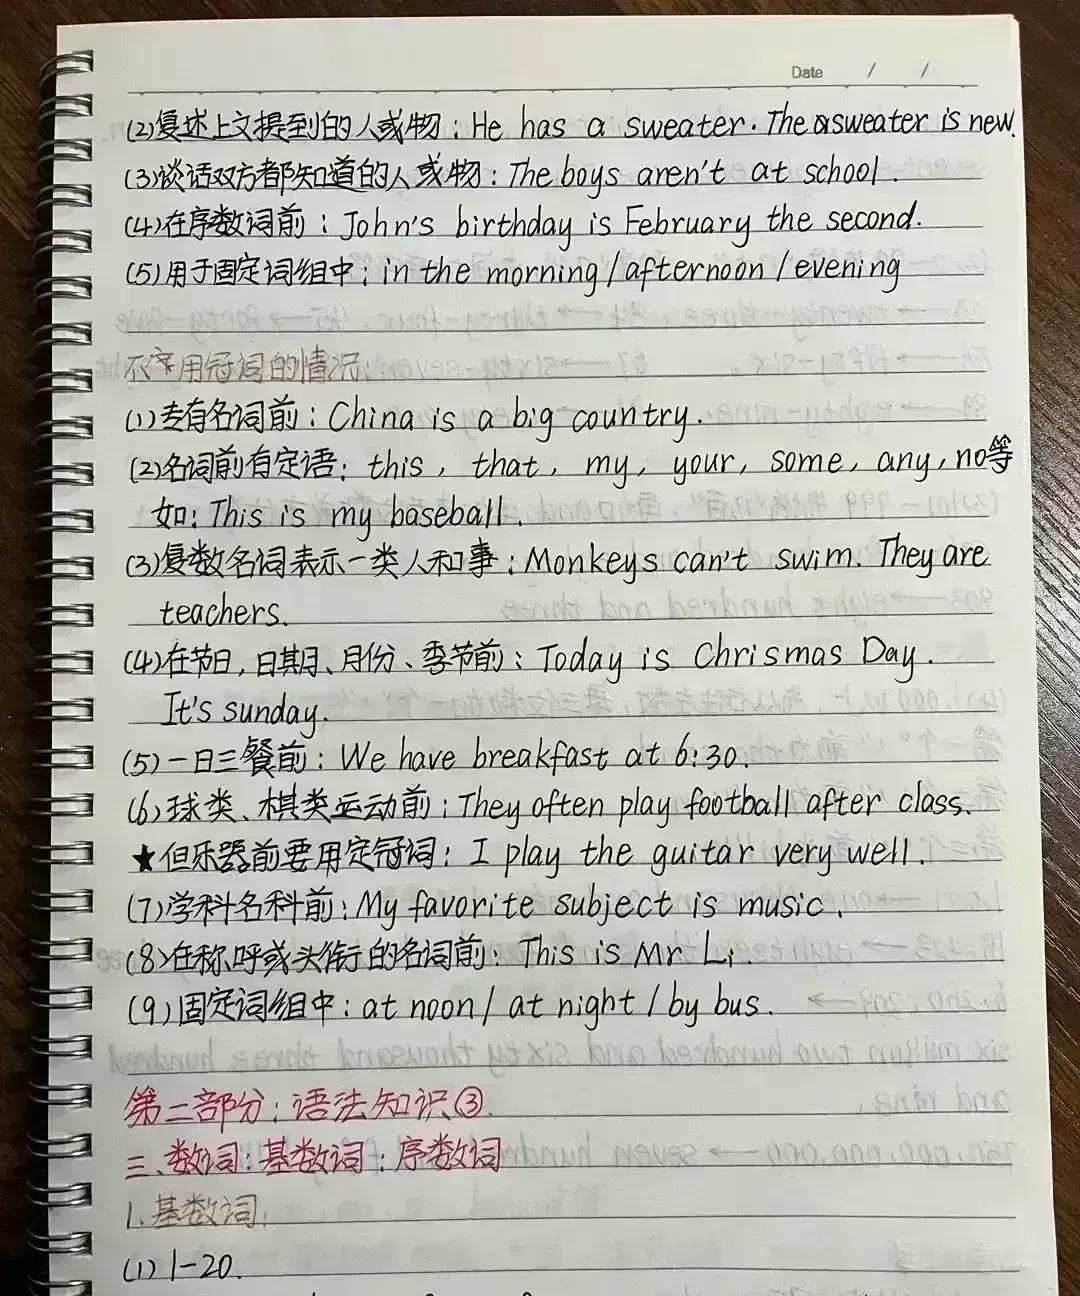 Date / /
(2)复述上文提到的人或物：He has a sweater. The sweater is new.
(3)谈话双方都知道的人或物：The boys aren't at school.
(4)在序数词前：John's birthday is February the second.
(5)用于固定词组中：in the morning / afternoon / evening
不用冠词的情况：
(1)专有名词前：China is a big country.
(2)名词前有定语：this, that, my, your, some, any, no等
如：This is my baseball.
(3)复数名词表示一类人和事：Monkeys can't swim. They are
teachers.
(4)在节日，日期、月份、季节前：Today is Chrismas Day.
It's sunday.
(5)一日三餐前：We have breakfast at 6:30.
(6)球类、棋类运动前：They often play football after class.
★但乐器前要用定冠词：I play the guitar very well.
(7)学科名科前：My favorite subject is music.
(8)在称呼或头衔的名词前：This is Mr Li.
(9)固定词组中：at noon / at night / by bus.
第二部分：语法知识③.
三、数词：基数词：序数词
1.基数词：
(1)1-20.